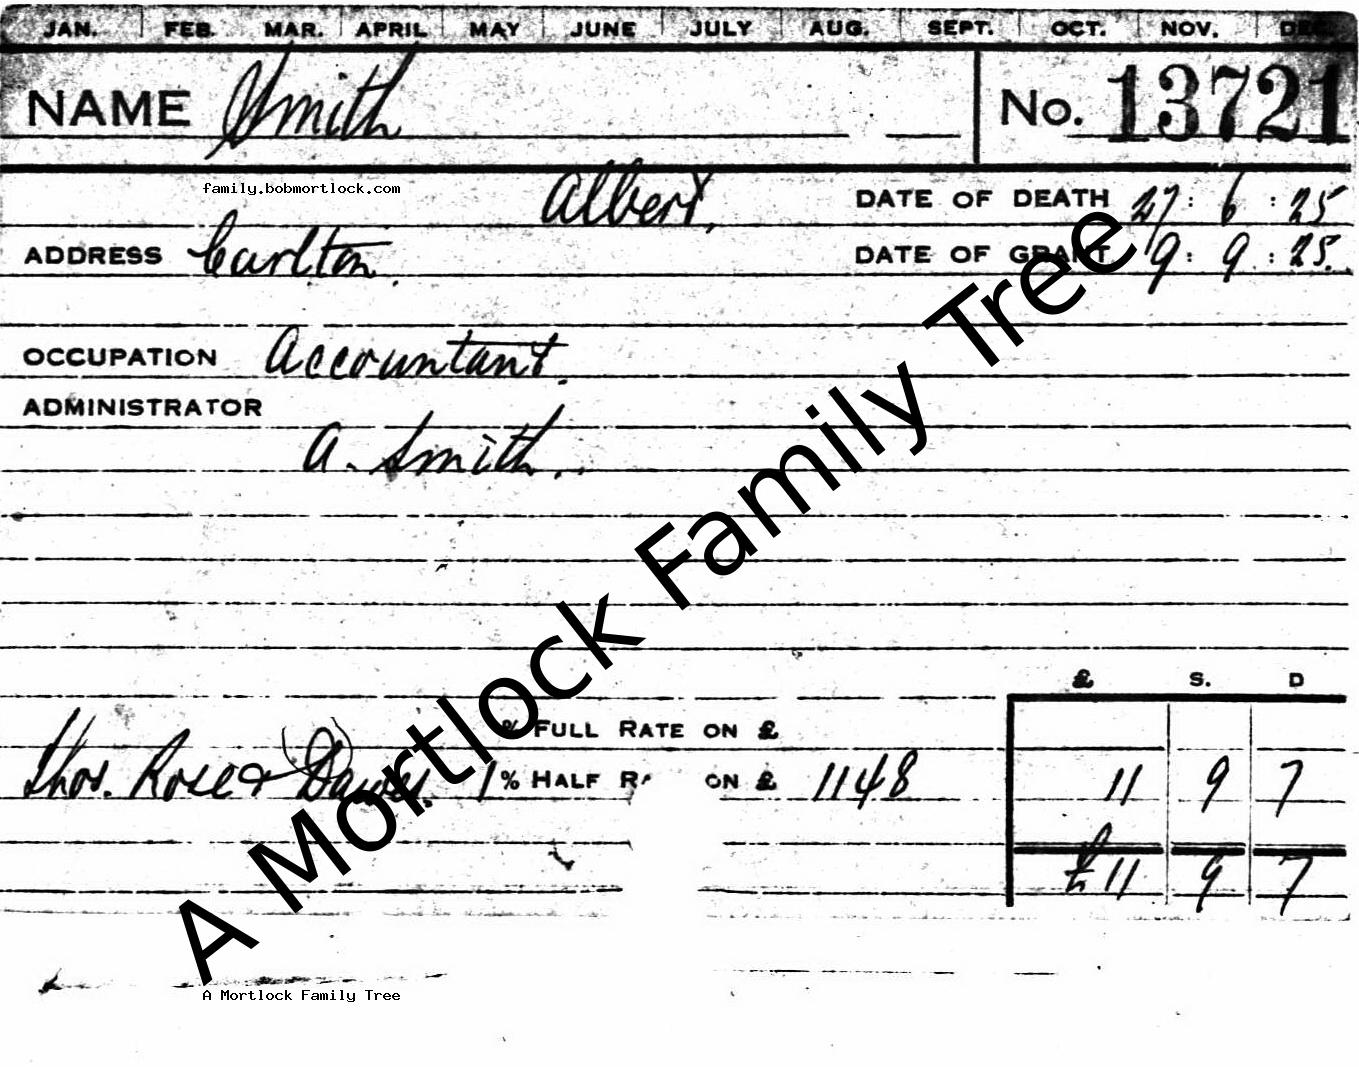 JAN. FEB. MAR. APRIL MAY JUNE JULY AUG. SEPT. OCT. NOV. DEC.
NAME Smith No. 13721
family.bobmortlock.com Albert, DATE OF DEATH 27 : 6 : 25
ADDRESS Carlton. DATE OF GRANT 9 : 9 : 25.
OCCUPATION Accountant.
ADMINISTRATOR
A. Smith.
A Mortlock Family Tree
£ S. D
% FULL RATE ON £
Thos. Rose & Dawes. 1 % HALF RA ON £ 1148 11 9 7
£ 11 9 7
A Mortlock Family Tree